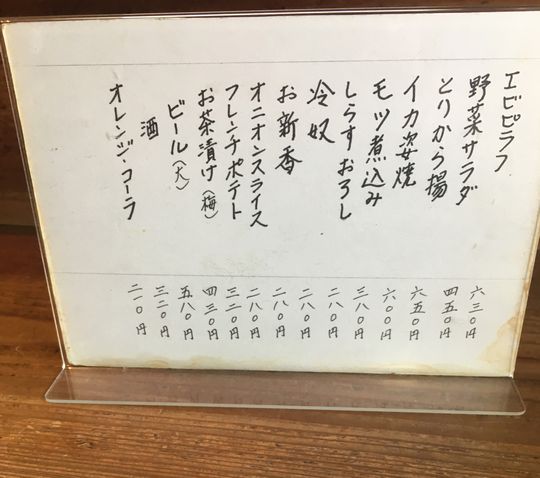 エビピラフ 六三〇円
野菜サラダ 四五〇円
とりから揚 六五〇円
イカ姿焼 六〇〇円
モツ煮込み 三八〇円
しらすおろし 二八〇円
冷奴 二八〇円
お新香 二八〇円
オニオンスライス 二八〇円
フレンチポテト 三二〇円
お茶漬け(梅) 四三〇円
ビール(大) 五八〇円
酒 三二〇円
オレンジ・コーラ 二一〇円